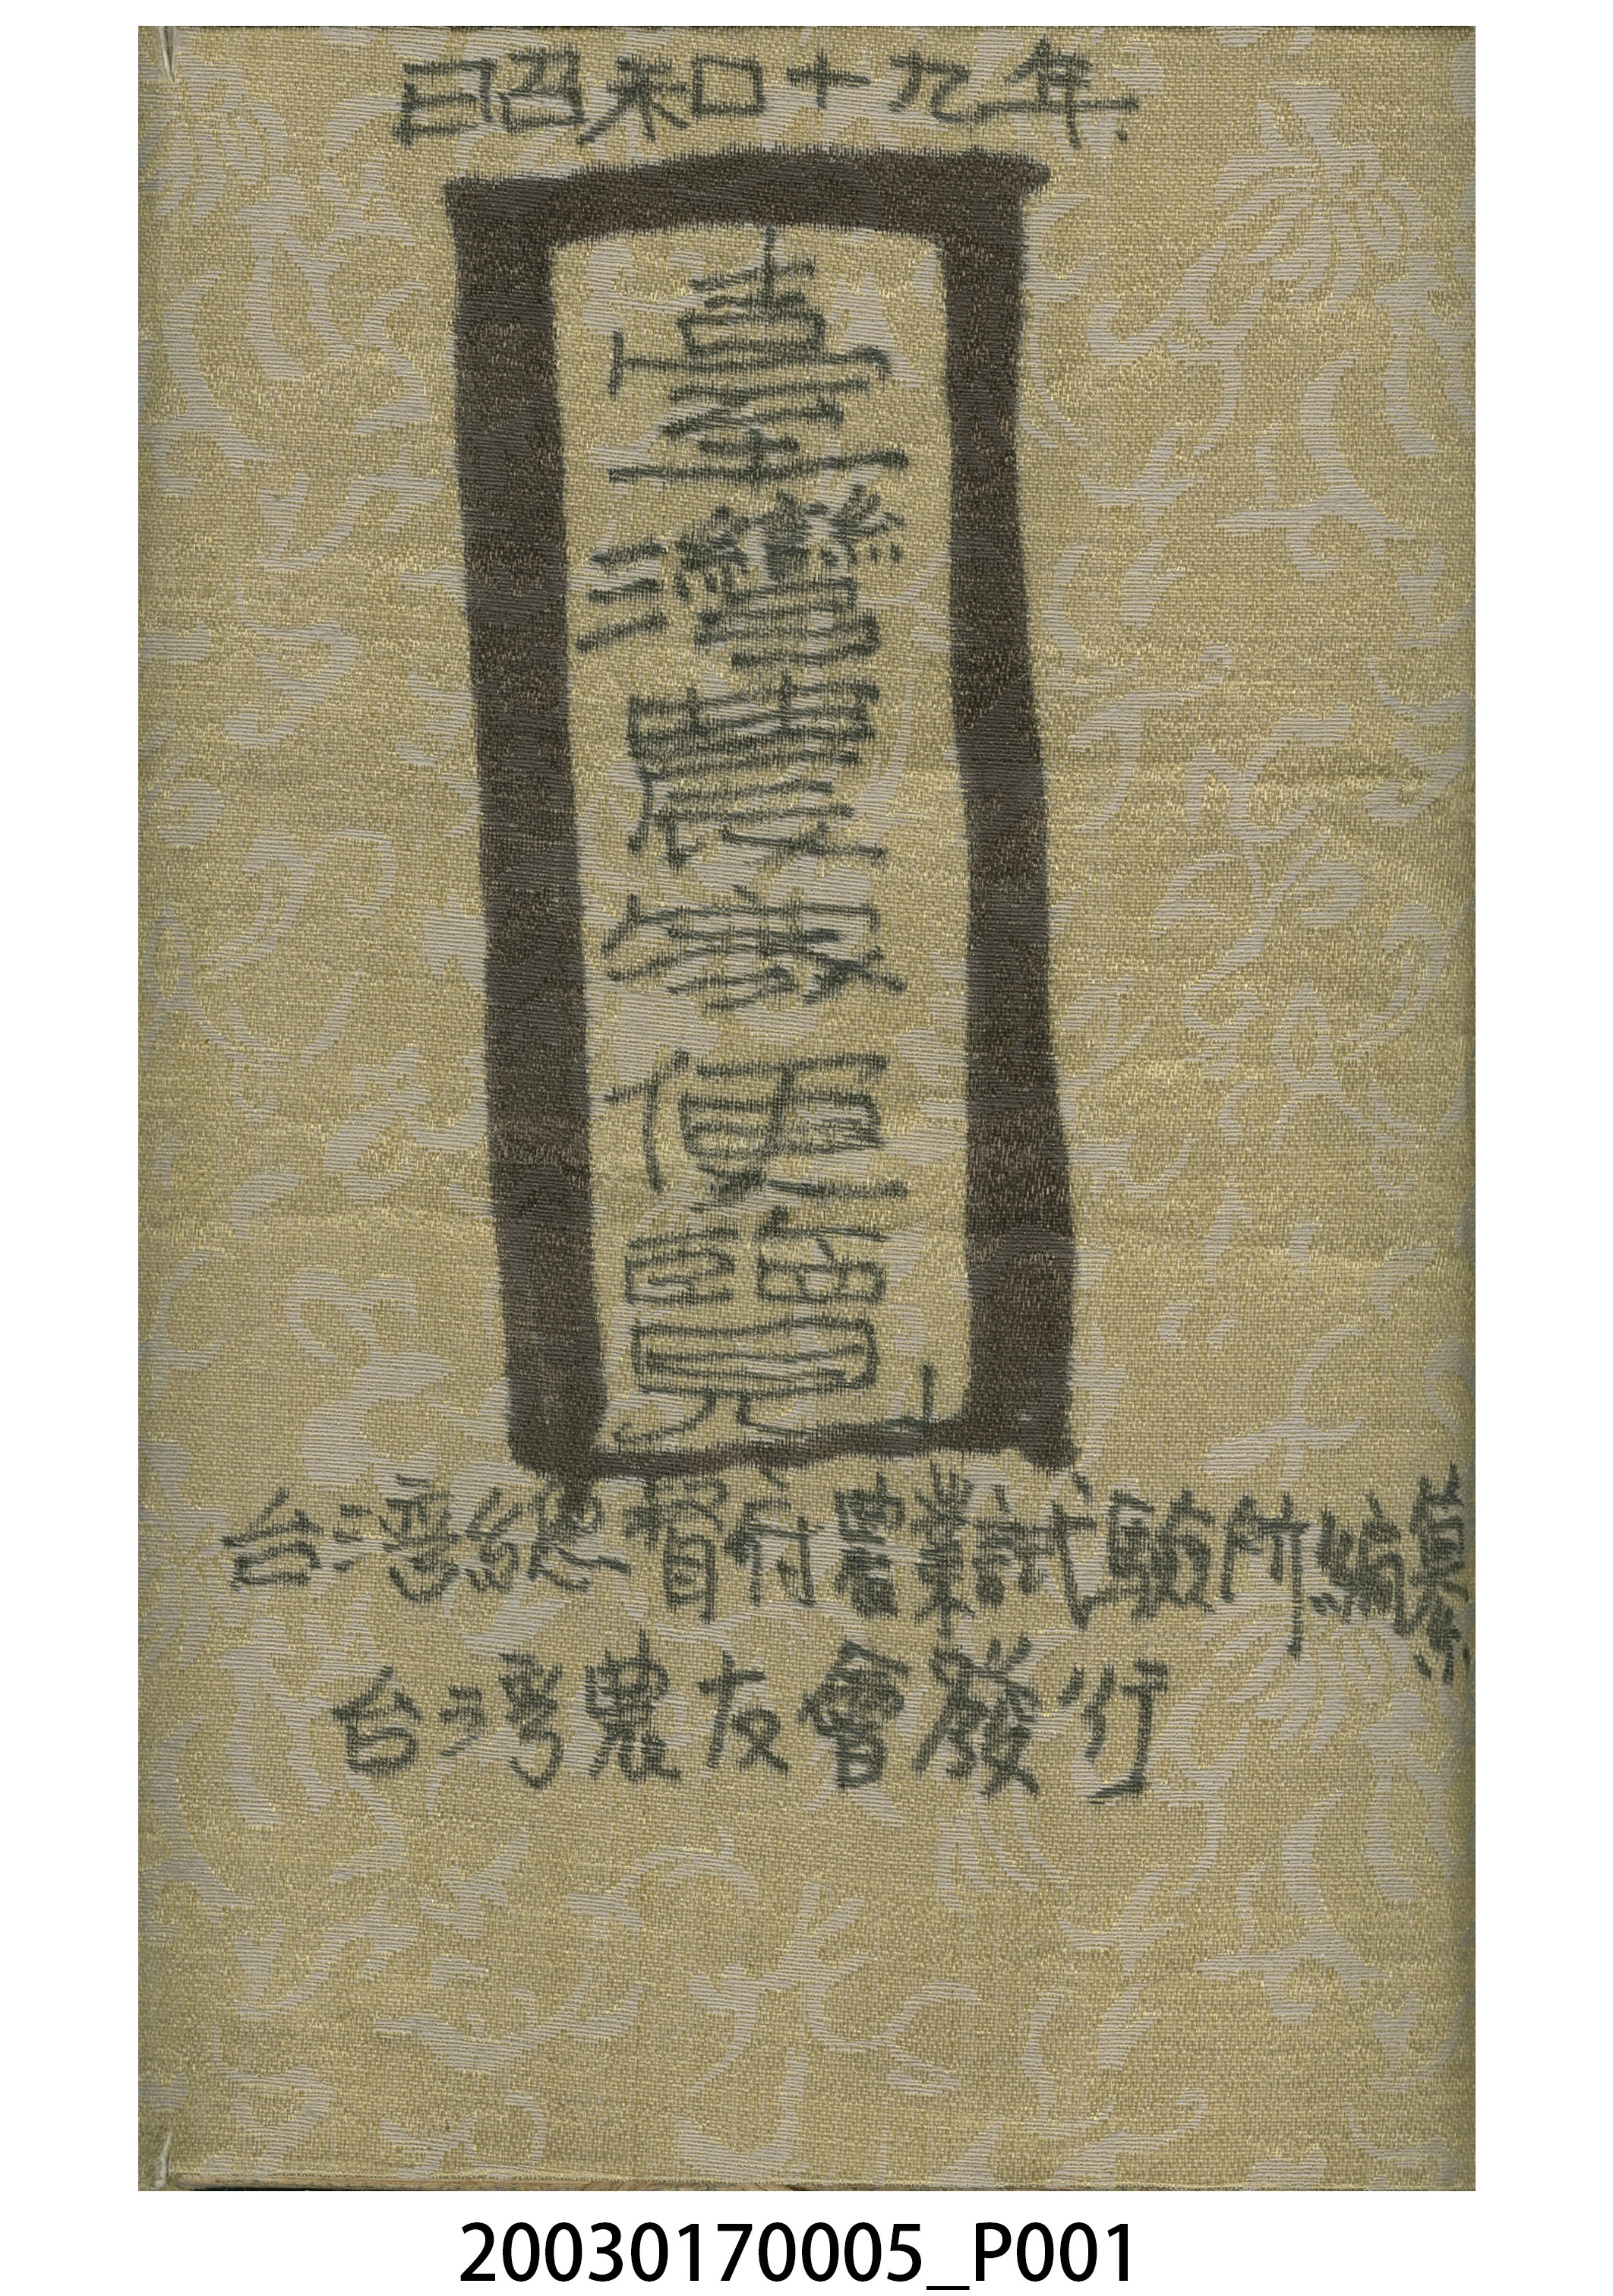 昭和十九年
臺灣農家便覽
台湾総督府農業試験所編纂
台湾農友會發行
20030170005_P001